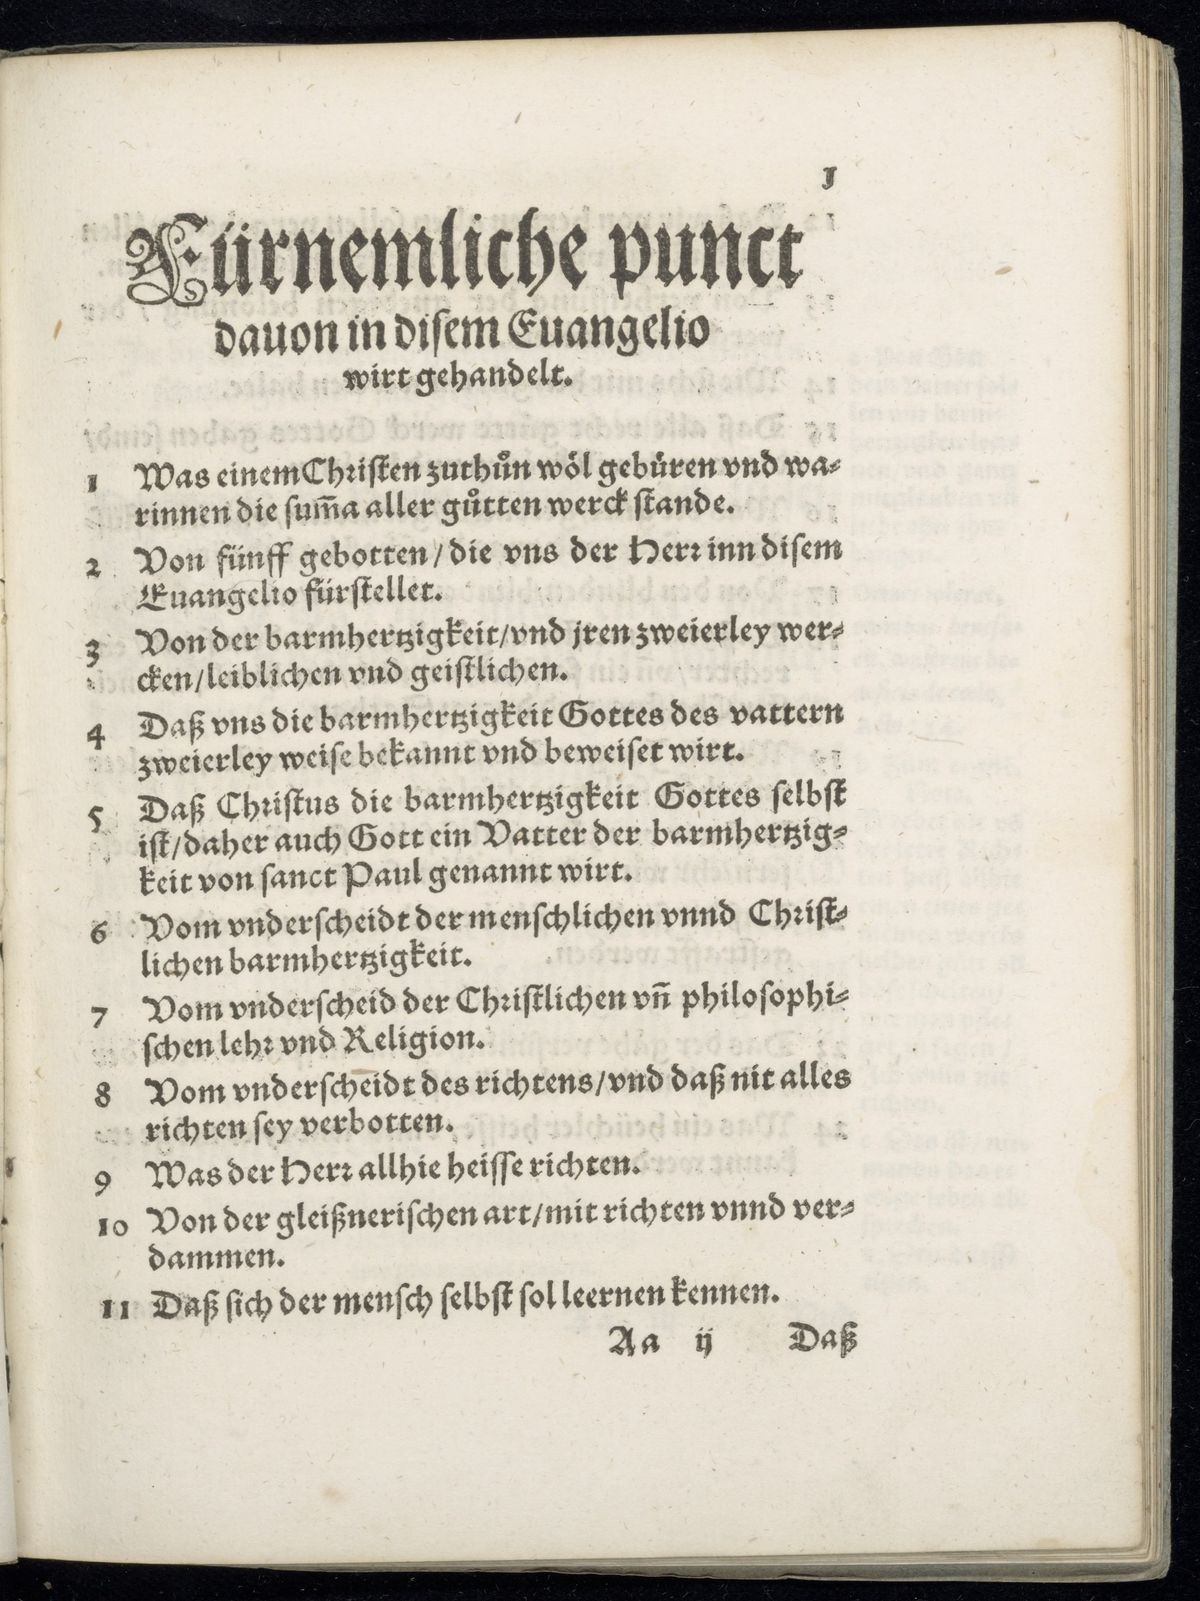 1
Fürnemliche punct
dauon in disem Euangelio
wirt gehandelt.
1 Was einem Chriſten zuthůn wöl gebüren vnd wa⸗
rinnen die ſum̃a aller gůtten werck ſtande.
2 Von fünff gebotten/ die vns der Herꝛ inn diſem
Euangelio fürſtellet.
3 Von der barmhertzigkeit/ vnd jren zweierley wer⸗
cken/ leiblichen vnd geiſtlichen.
4 Daß vns die barmhertzigkeit Gottes des vattern
zweierley weiſe bekannt vnd beweiſet wirt.
5 Daß Chriſtus die barmhertzigkeit Gottes ſelbſt
iſt/ daher auch Gott ein Vatter der barmhertzig⸗
keit von ſanct Paul genannt wirt.
6 Vom vnderſcheidt der menſchlichen vnnd Chriſt⸗
lichen barmhertzigkeit.
7 Vom vnderſcheid der Chriſtlichen vñ philoſophi⸗
ſchen lehꝛ vnd Religion.
8 Vom vnderſcheidt des richtens/ vnd daß nit alles
richten ſey verbotten.
9 Was der Herꝛ allhie heiſſe richten.
10 Von der gleißneriſchen art/ mit richten vnnd ver⸗
dammen.
11 Daß ſich der menſch ſelbſt ſol leernen kennen.
Aa ij Daß